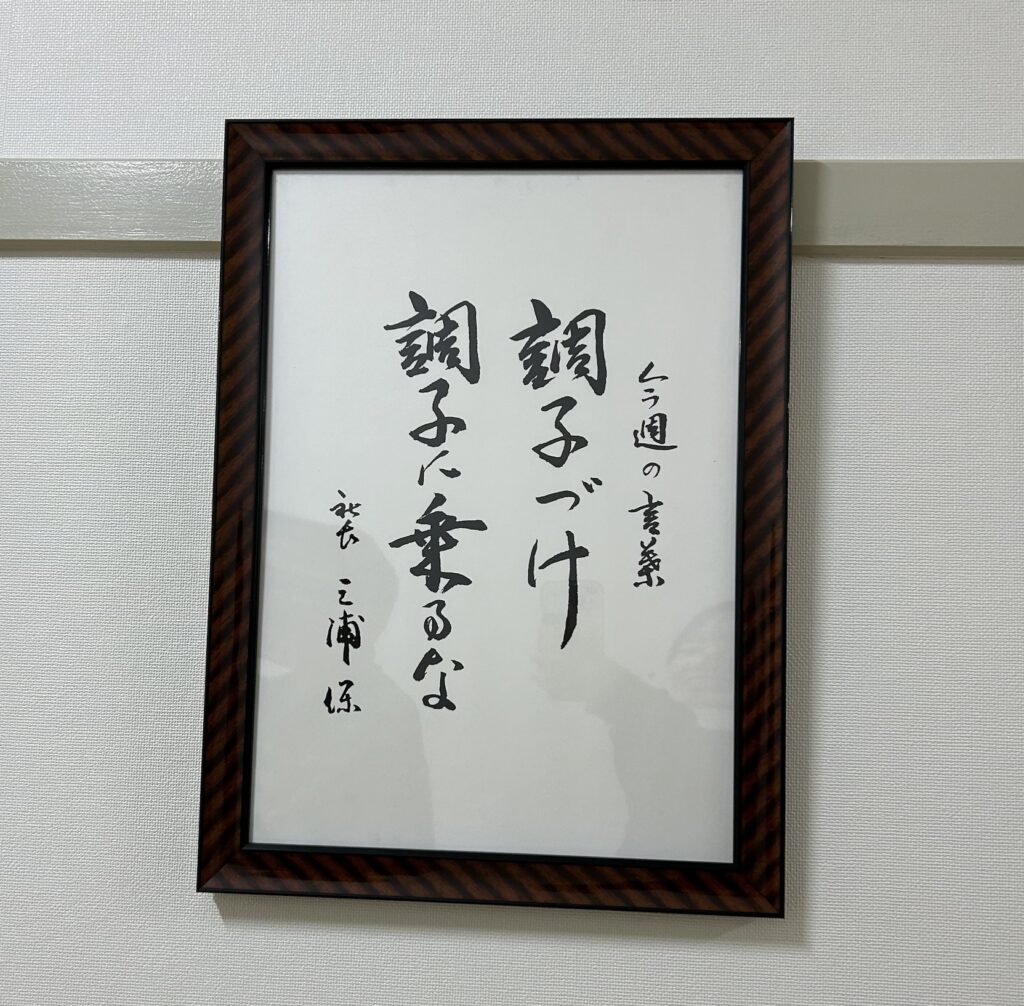 今週の言葉
調子づけ
調子に乗るな
社長 三浦 保